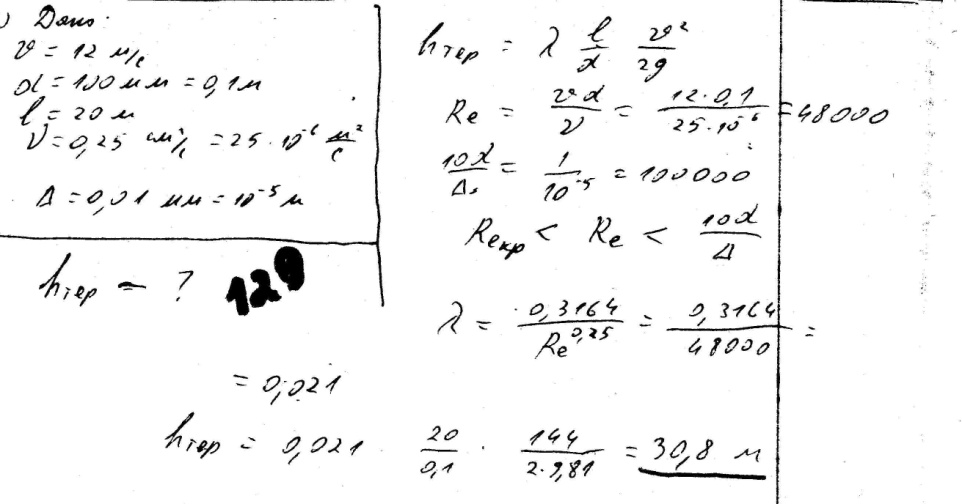 ) Дано:
v = 12 м/с
d = 100 мм = 0,1 м
l = 20 м
ν = 0,25 см²/с = 25 · 10⁻⁶ м²/с
Δ = 0,01 мм = 10⁻⁵ м
hтер – ?
129
hтер = λ l/d v²/2g
Re = vd/ν = 12·0,1/25·10⁻⁶ = 48000
10d/Δ = 1/10⁻⁵ = 100000
Reкр < Re < 10d/Δ
λ = 0,3164/Re^0,25 = 0,3164/48000 =
= 0,021
hтер = 0,021 · 20/0,1 · 144/2·9,81 = 30,8 м